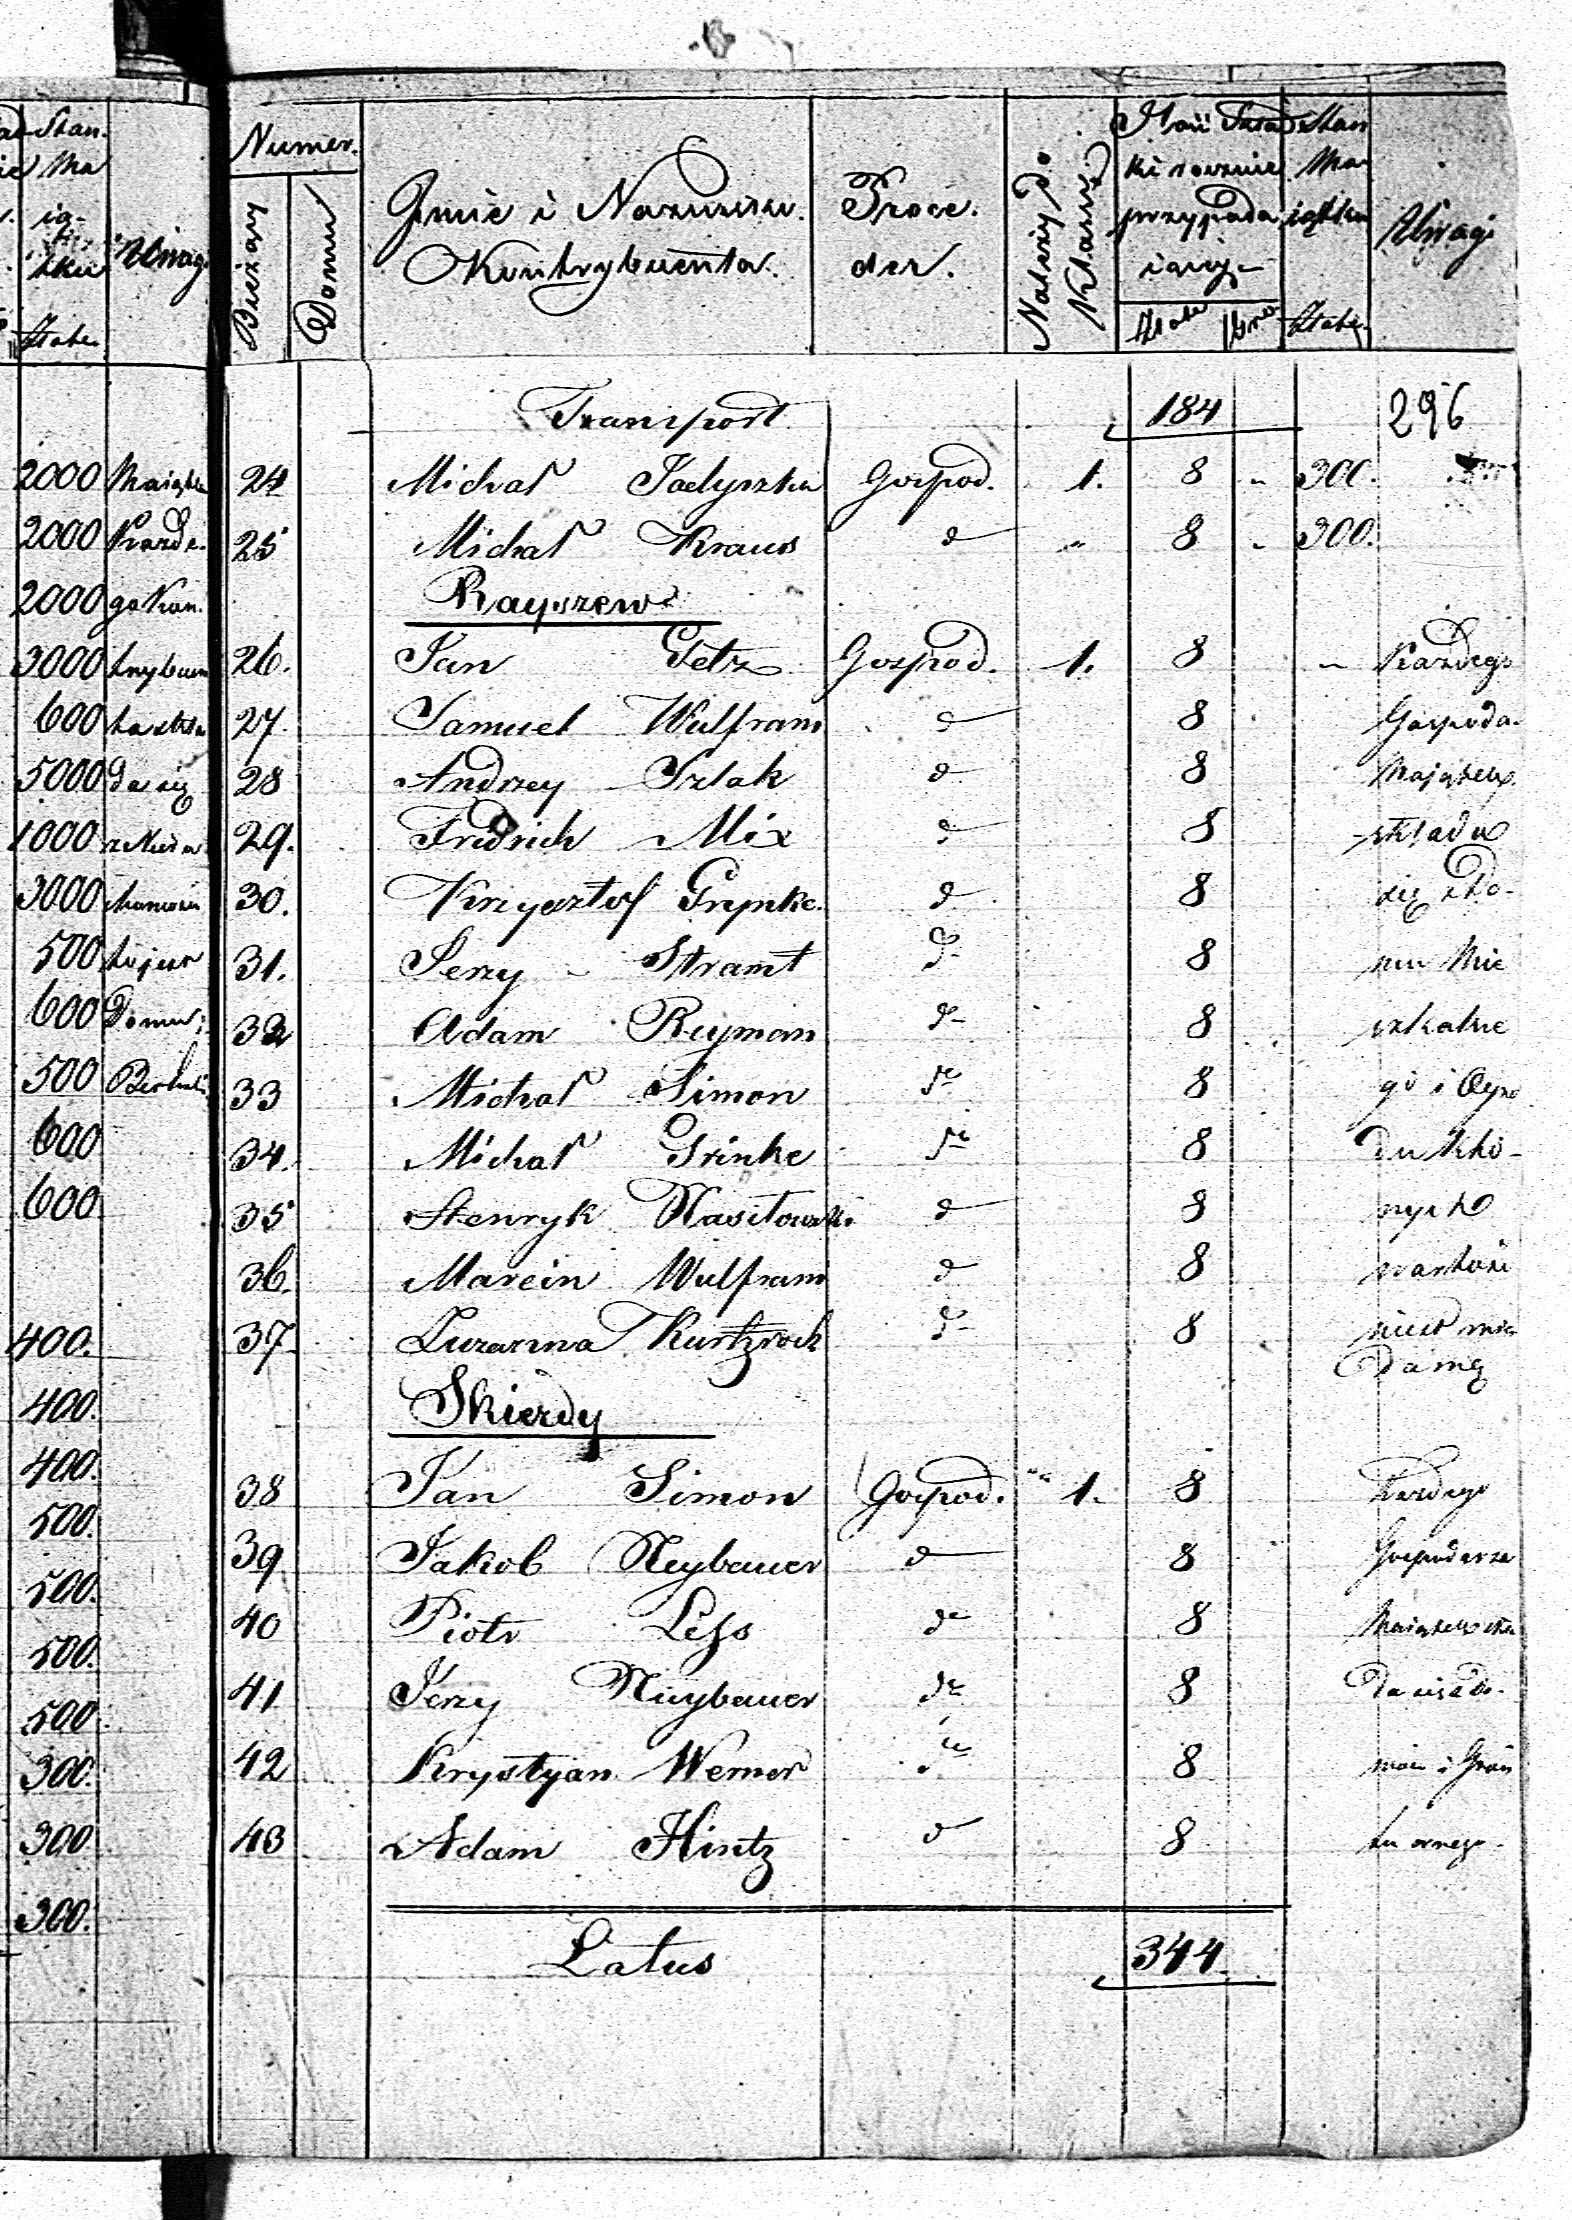 Stan
Ma
ią-
tku
Uwagi
Złote
2000 Maiątek
2000 Każde-
2000 go Kon-
3000 trybuen
600 ta skła
5000 da się
1000
3000
500
600 Domu i
500
600
600
400.
400.
400.
500.
500.
500.
500.
300.
300
300.
Numer.
Bieżący
Domu
Imie i Nazwisko
Kontrybuenta.
Proce-
der.
Należy do
Klassy
Ilość Skład
ki rocznie
przypada
iącey
Złote
Gro
Stan
Ma-
iątku
Złote
Uwagi
Transport 184 296
24 Michał Jadyszka Gospod. 1. 8 " 300.
25 Michał Kraus d " 8 " 300.
Rayszewo
26. Jan Getz Gospod. 1. 8 " Każdego
27. Samuel Wulfram d 8 Gospoda-
28 Andrzey Szlak d 8 Majątek
29. Fridrich Mix d 8 składa
30. Krzysztof Grynke. d 8 się z Do-
31. Jerzy Stramt d 8 mu Mie
32 Adam Reyman d 8 szkalne
33 Michał Simon d 8 go i Ogro
34. Michał Grinke d 8 du któ-
35 Henryk Wasilowski d 8 nych
36. Marcin Wulfram d 8 wartość
37. Zuzanna Kurtzrock d 8 niest wia
domą
Skierdy
38 Jan Simon Gospod. " 1. 8 Każdego
39 Jakob Neybauer d 8 Gospodarza
40 Piotr Less d 8 Maiątek skła
41 Jerzy Neybauer d 8 da się z do-
42 Krystyan Werner d 8 mów i Grun
43 Adam Hintz d 8 tu ornego
Latus 344